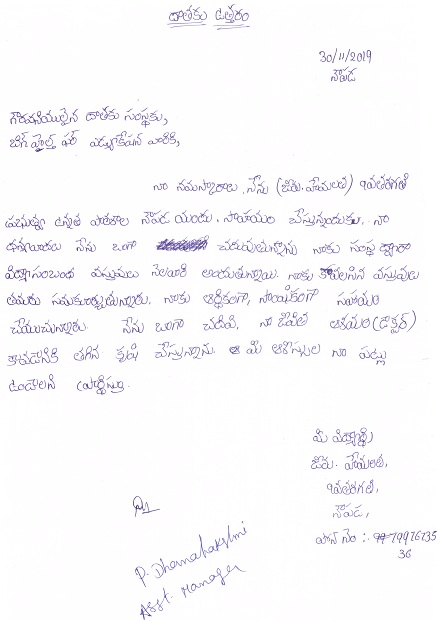 దాతకు ఉత్తరం
30/11/2019
నౌపడ
గౌరవనియులైన దాతకు సంస్థకు,
నా నమస్కారాలు. నేను (జిరు. హేమలత) 9వతరగతి
ప్రభుత్వ ఉన్నత పాఠశాల నౌపడ యందు. సాహయం చేస్తున్నందుకు. నా
ధన్యవాదలు నేను బాగా చదువుతున్నాను నాకు సంస్థ ద్వారా
విద్యాసంబంధ వస్తువులు నెలవారి అందుతున్నాయి. నాకు కావలసిన వస్తువులు
తమరు సమకూర్చుతున్నారు. నాకు ఆర్ధికంగా, సాయికంగా సహాయం
చేయుచున్నారు. నేను బాగా చదివి, నా జీవిత ఆశయం (డాక్టర్)
కావడానికి తగిన కృషి చేస్తున్నాను. ఆ మి ఆశీస్సుల నా పట్ల
ఉండాలని ప్రార్ధిస్తూ.
మీ విద్యార్థి
జిరు. హేమలత,
9వతరగతి,
నౌపడ,
ఫోన్ నెం :- 79976735
36
P. Dhanalakshmi
Asst. Manager